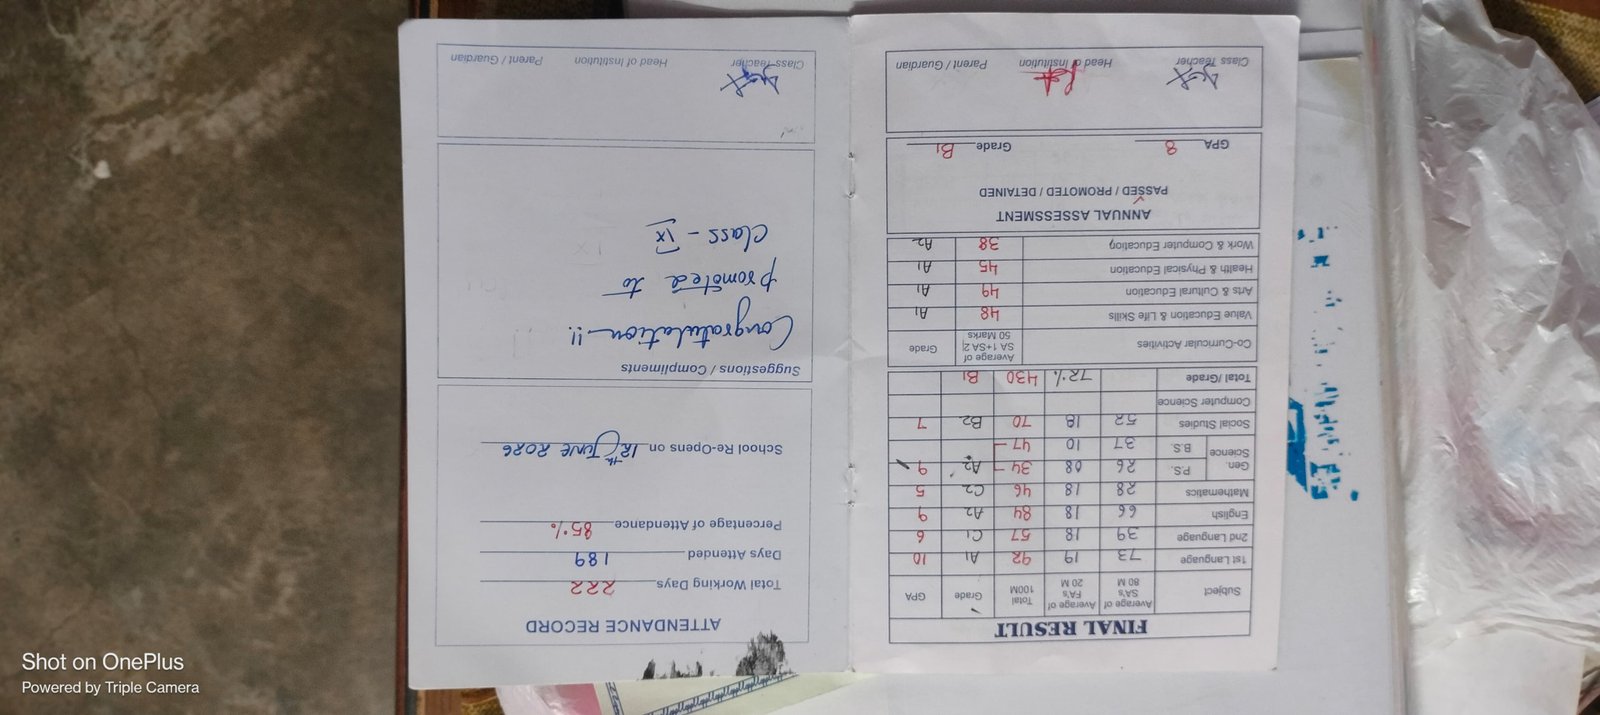 FINAL RESULT
Subject | Average of SA's 80 M | Average of FA's 20 M | Total 100M | Grade | GPA
1st Language | 73 | 19 | 92 | A1 | 10
2nd Language | 39 | 18 | 57 | C1 | 6
English | 66 | 18 | 84 | A2 | 9
Mathematics | 28 | 18 | 46 | C2 | 5
Gen. Science | P.S. | 26 | 08 | 34 | A2 | 9
B.S. | 37 | 10 | 47
Social Studies | 52 | 18 | 70 | B2 | 7
Computer Science
Total /Grade | 72% | 430 | B1
Co-Curricular Activities | Average of SA 1+SA 2 50 Marks | Grade
Value Education & Life Skills | 48 | A1
Arts & Cultural Education | 49 | A1
Health & Physical Education | 45 | A1
Work & Computer Education | 38 | A2
ANNUAL ASSESSMENT
PASSED / PROMOTED / DETAINED
GPA 8 Grade B1
Class Teacher Head of Institution Parent / Guardian
ATTENDANCE RECORD
Total Working Days 222
Days Attended 189
Percentage of Attendance 85%
School Re-Opens on 12th June 2026
Suggestions / Compliments
Congratulation !!
promoted to
Class - IX
Class Teacher Head of Institution Parent / Guardian
Shot on OnePlus
Powered by Triple Camera